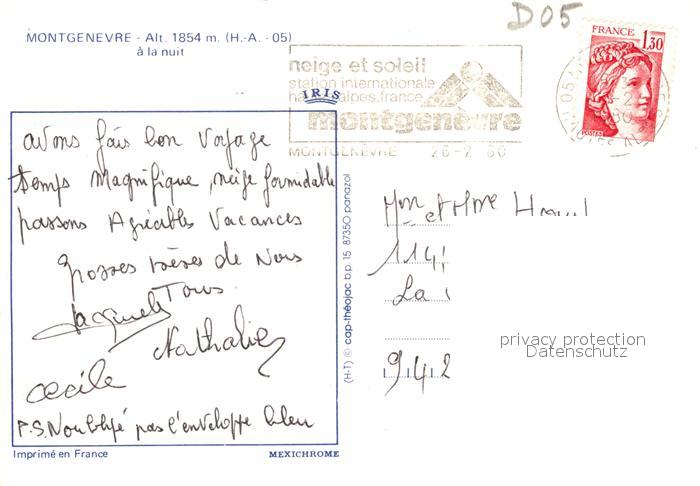 D05
MONTGENEVRE - Alt. 1854 m. (H.-A. - 05)
à la nuit
FRANCE 1,30
POSTES
neige et soleil
station internationale
alpes.france
montgenèvre
MONTGENEVRE 26-2
IRIS
avons fais bon voyage
temps magnifique, neige formidable
passons Agréables Vacances
grosses bises de Nous
Tous.
Jacqueline
Nathalie
Cecile
P.S. Noubliyé pas l'enveloppe bleu
(H-T) © cap-théojac b.p. 15 87350 panazol
Mon et Mme
114
La
942
privacy protection
Datenschutz
Imprimé en France
MEXICHROME